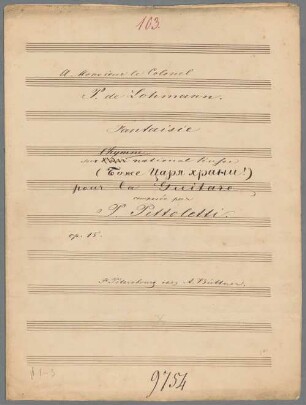 163.
A Monsieur le Colonel
P. de Lohmann.
Fantaisie
l'hymne
sur national Russe
(Боже Царя храни!)
pour la Guitare
composée par
P. Pettoletti.
op. 15.
St Petersbourg chez A. Büttner.
9754